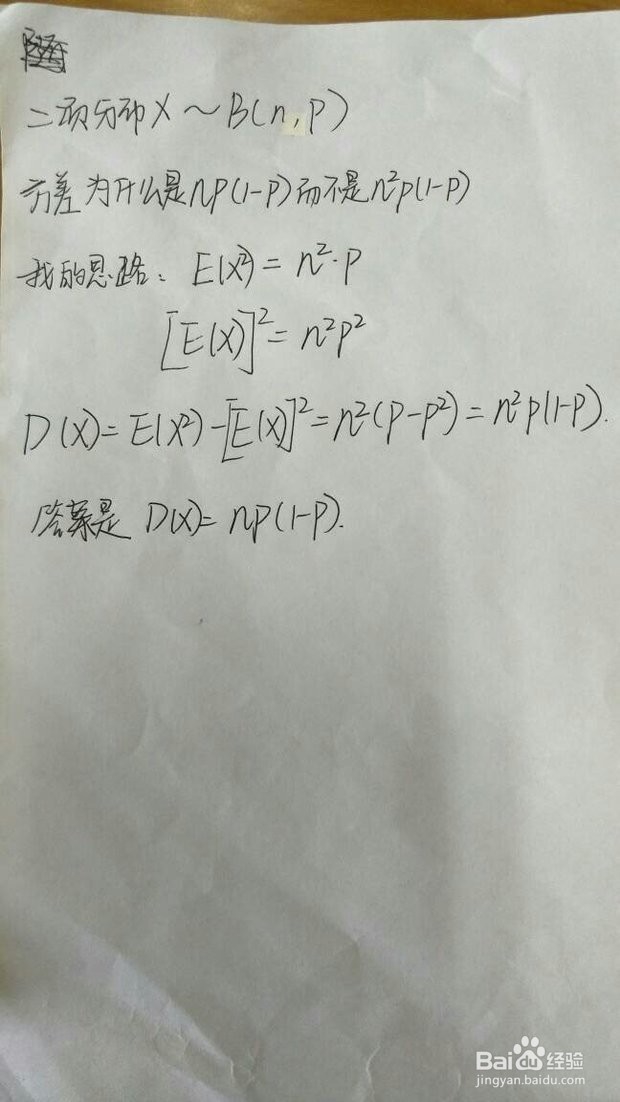 二项分布X～B(n,p)
方差为什么是np(1-p)而不是n²p(1-p)
我的思路：E(X²)=n²·p
[E(X)]²=n²p²
D(X)=E(X²)-[E(X)]²=n²(p-p²)=n²p(1-p).
答案是 D(X)=np(1-p).
Baidu经验
jingyan.baidu.com